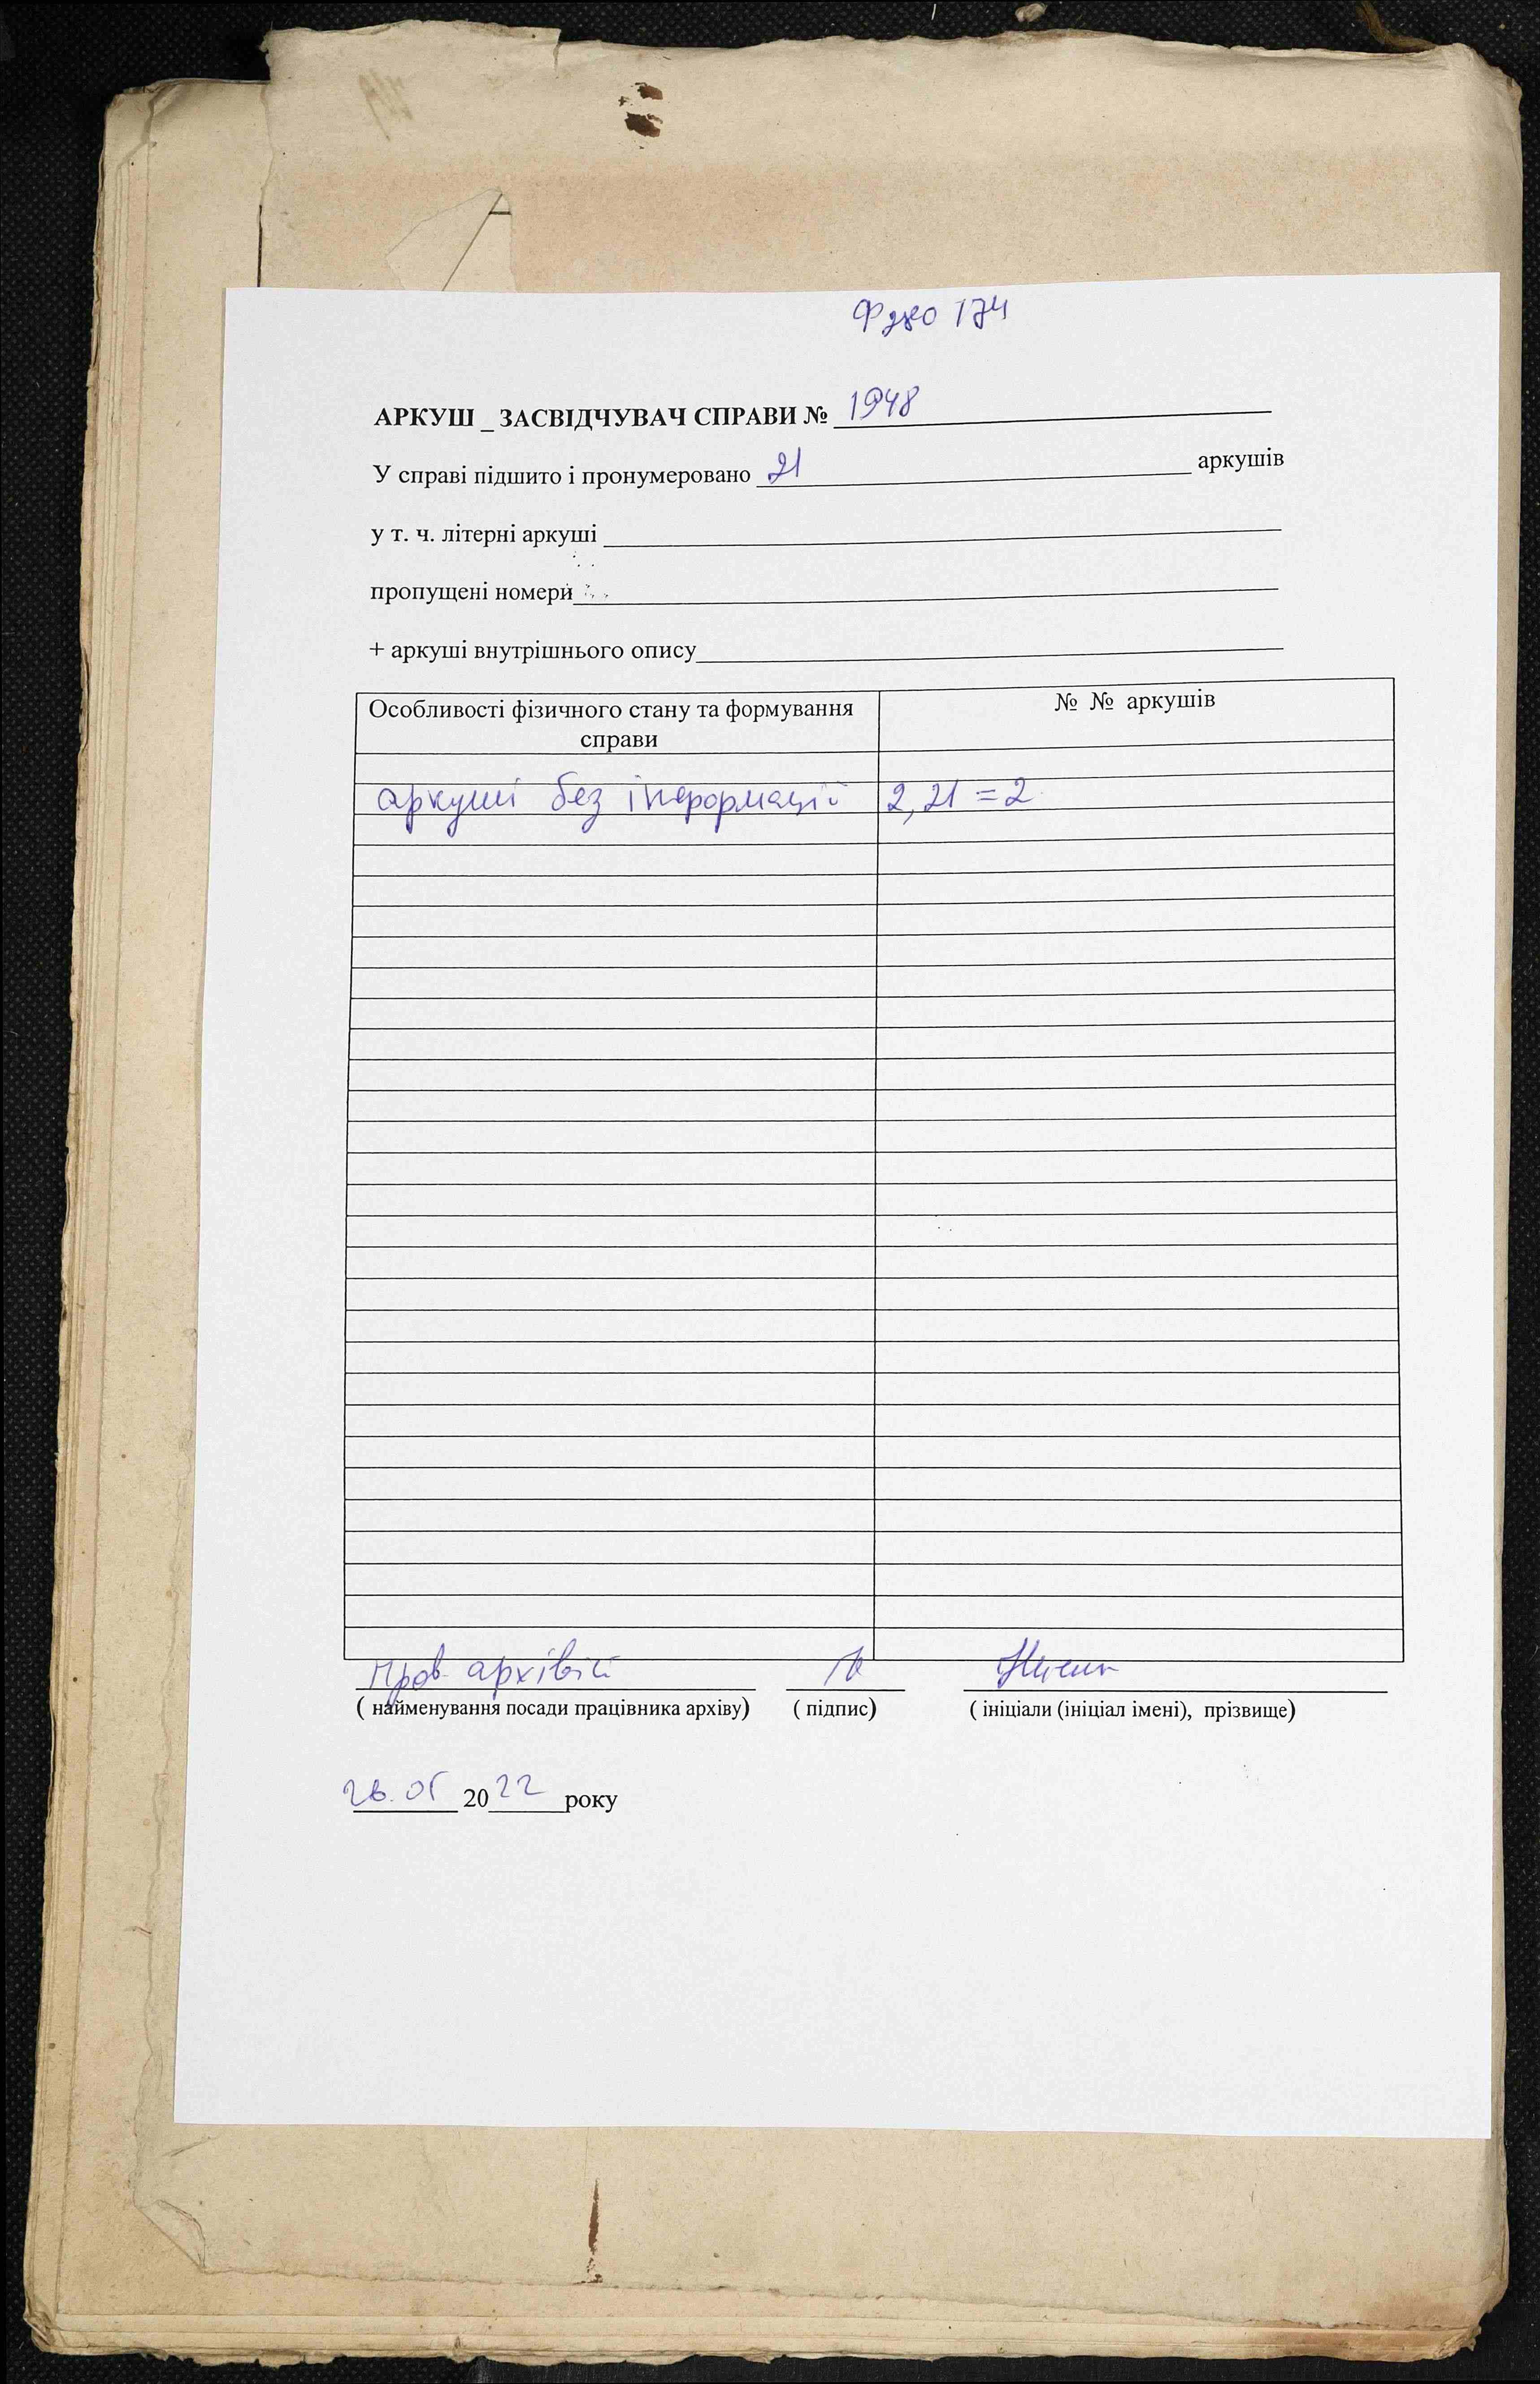 174
АРКУШ _ ЗАСВІДЧУВАЧ СПРАВИ № 1948
У справі підшито і пронумеровано 21 аркушів
у т. ч. літерні аркуші
пропущені номери
+ аркуші внутрішнього опису
Особливості фізичного стану та формування справи
№ № аркушів
аркуші без інформації 2, 21 = 2
Пров. архівіст
( найменування посади працівника архіву) ( підпис) ( ініціали (ініціал імені), прізвище)
26.05 2022 року